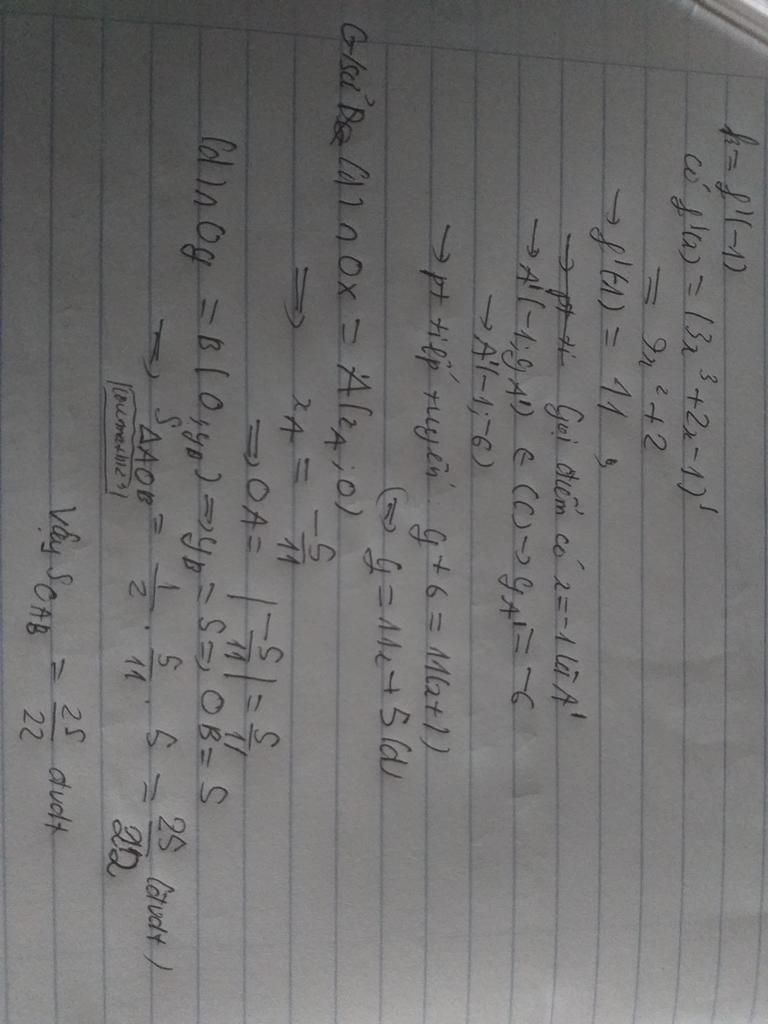 k = f'(-1)
có f'(x) = (3x³ + 2x - 1)'
= 9x² + 2
→ f'(-1) = 11
→ pt ti Gọi điểm có x = -1 là A'
→ A'(-1; y_A') ∈ (C) → y_A' = -6
→ A'(-1; -6)
→ pt tiếp tuyến: y + 6 = 11(x + 1)
⇔ y = 11x + 5 (d)
G/sử (d) ∩ Ox = A(x_A; 0)
⇒ x_A = -5/11
⇒ OA = |-5/11| = 5/11
(d) ∩ Oy = B(0; y_B) ⇒ y_B = 5 ⇒ OB = 5
⇒ S ΔAOB = 1/2 . 5/11 . 5 = 25/22 (đvdt)
Vậy S OAB = 25/22 đvdt